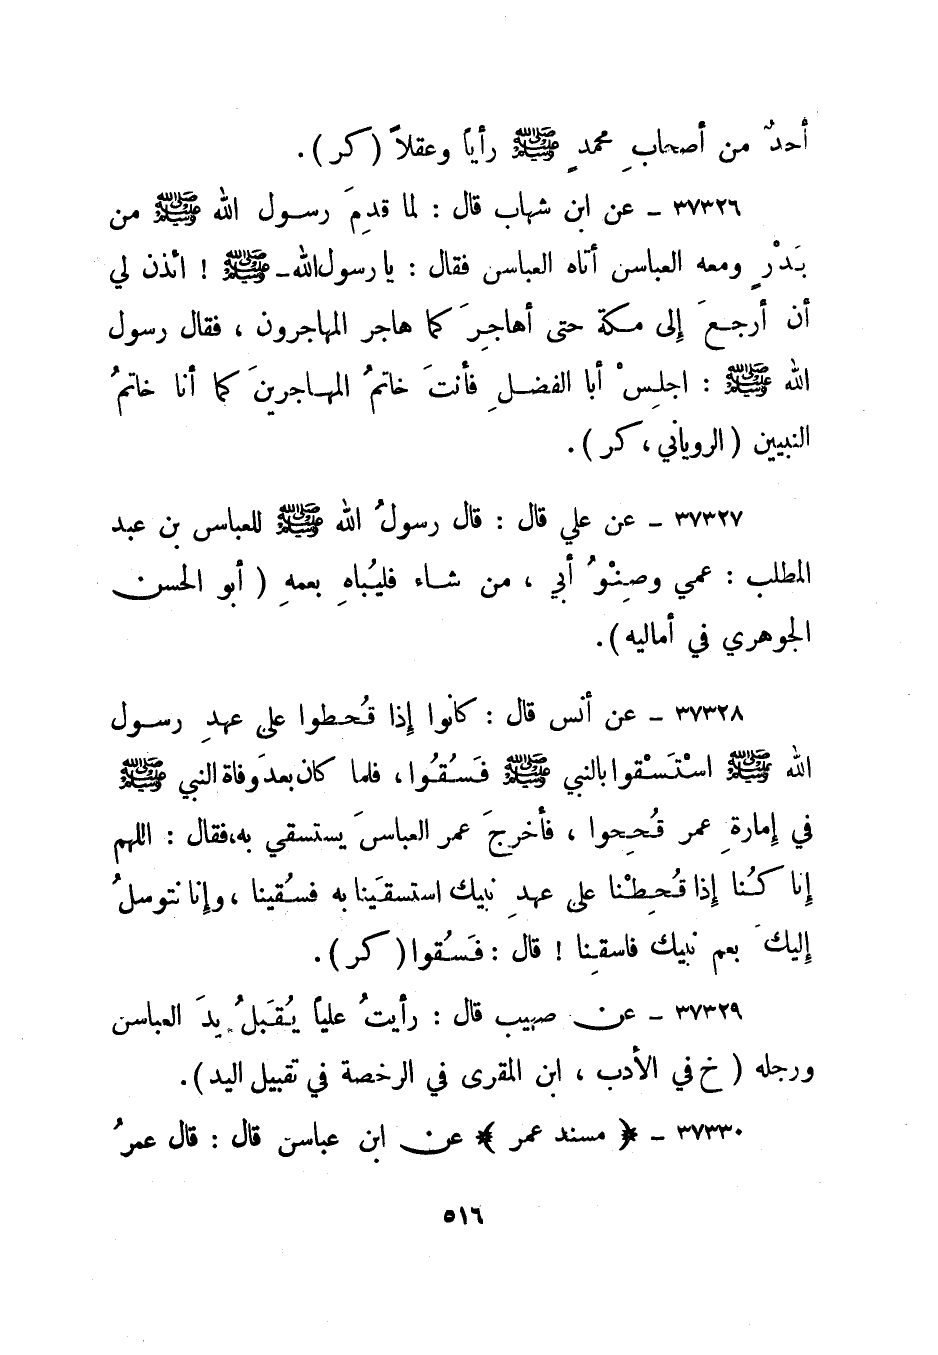 أحدٌ من أصحابِ محمدٍ ﷺ رأياً وعقلاً (كر).
٣٧٣٢٦ ـ عن ابن شهاب قال : لما قدِمَ رسول الله ﷺ من
بَدْرٍ ومعه العباس أتاه العباس فقال : يا رسول الله ـ ﷺ ! ائذن لي
أن أرجعَ إلى مكة حتى أهاجِرَ كما هاجر المهاجرون ، فقال رسول
الله ﷺ : اجلِسْ أبا الفضلِ فأنتَ خاتمُ المهاجرينَ كما أنا خاتمُ
النبيين (الروياني ، كر).
٣٧٣٢٧ ـ عن علي قال : قال رسولُ الله ﷺ للعباس بن عبد
المطلب : عمي وصِنْوُ أبي ، من شاء فليُباهِ بعمهِ (أبو الحسن
الجوهري في أماليه).
٣٧٣٢٨ ـ عن أنس قال : كانوا إذا قُحطوا على عهدِ رسول
الله ﷺ اسْتَسْقوا بالنبي ﷺ فَسُقُوا ، فلما كان بعدَ وفاة النبي ﷺ
في إمارةِ عمر قُحِحوا ، فأخرجَ عمر العباسَ يستسقي به،فقال : اللهم
إنا كُنا إذا قُحِطْنا على عهدِ نبيك استسقَينا به فسُقينا ، وإنا نتوسلُ
إليكَ بعم نبيك فاسقِنا ! قال : فَسُقوا (كر).
٣٧٣٢٩ ـ عن صهيب قال : رأيتُ علياً يُقَبلُ يدَ العباس
ورجله (خ في الأدب ، ابن المقرى في الرخصة في تقبيل اليد).
٣٧٣٣٠ ـ ﴿ مسند عمر ﴾ عن ابن عباس قال : قال عمرُ
٥١٦